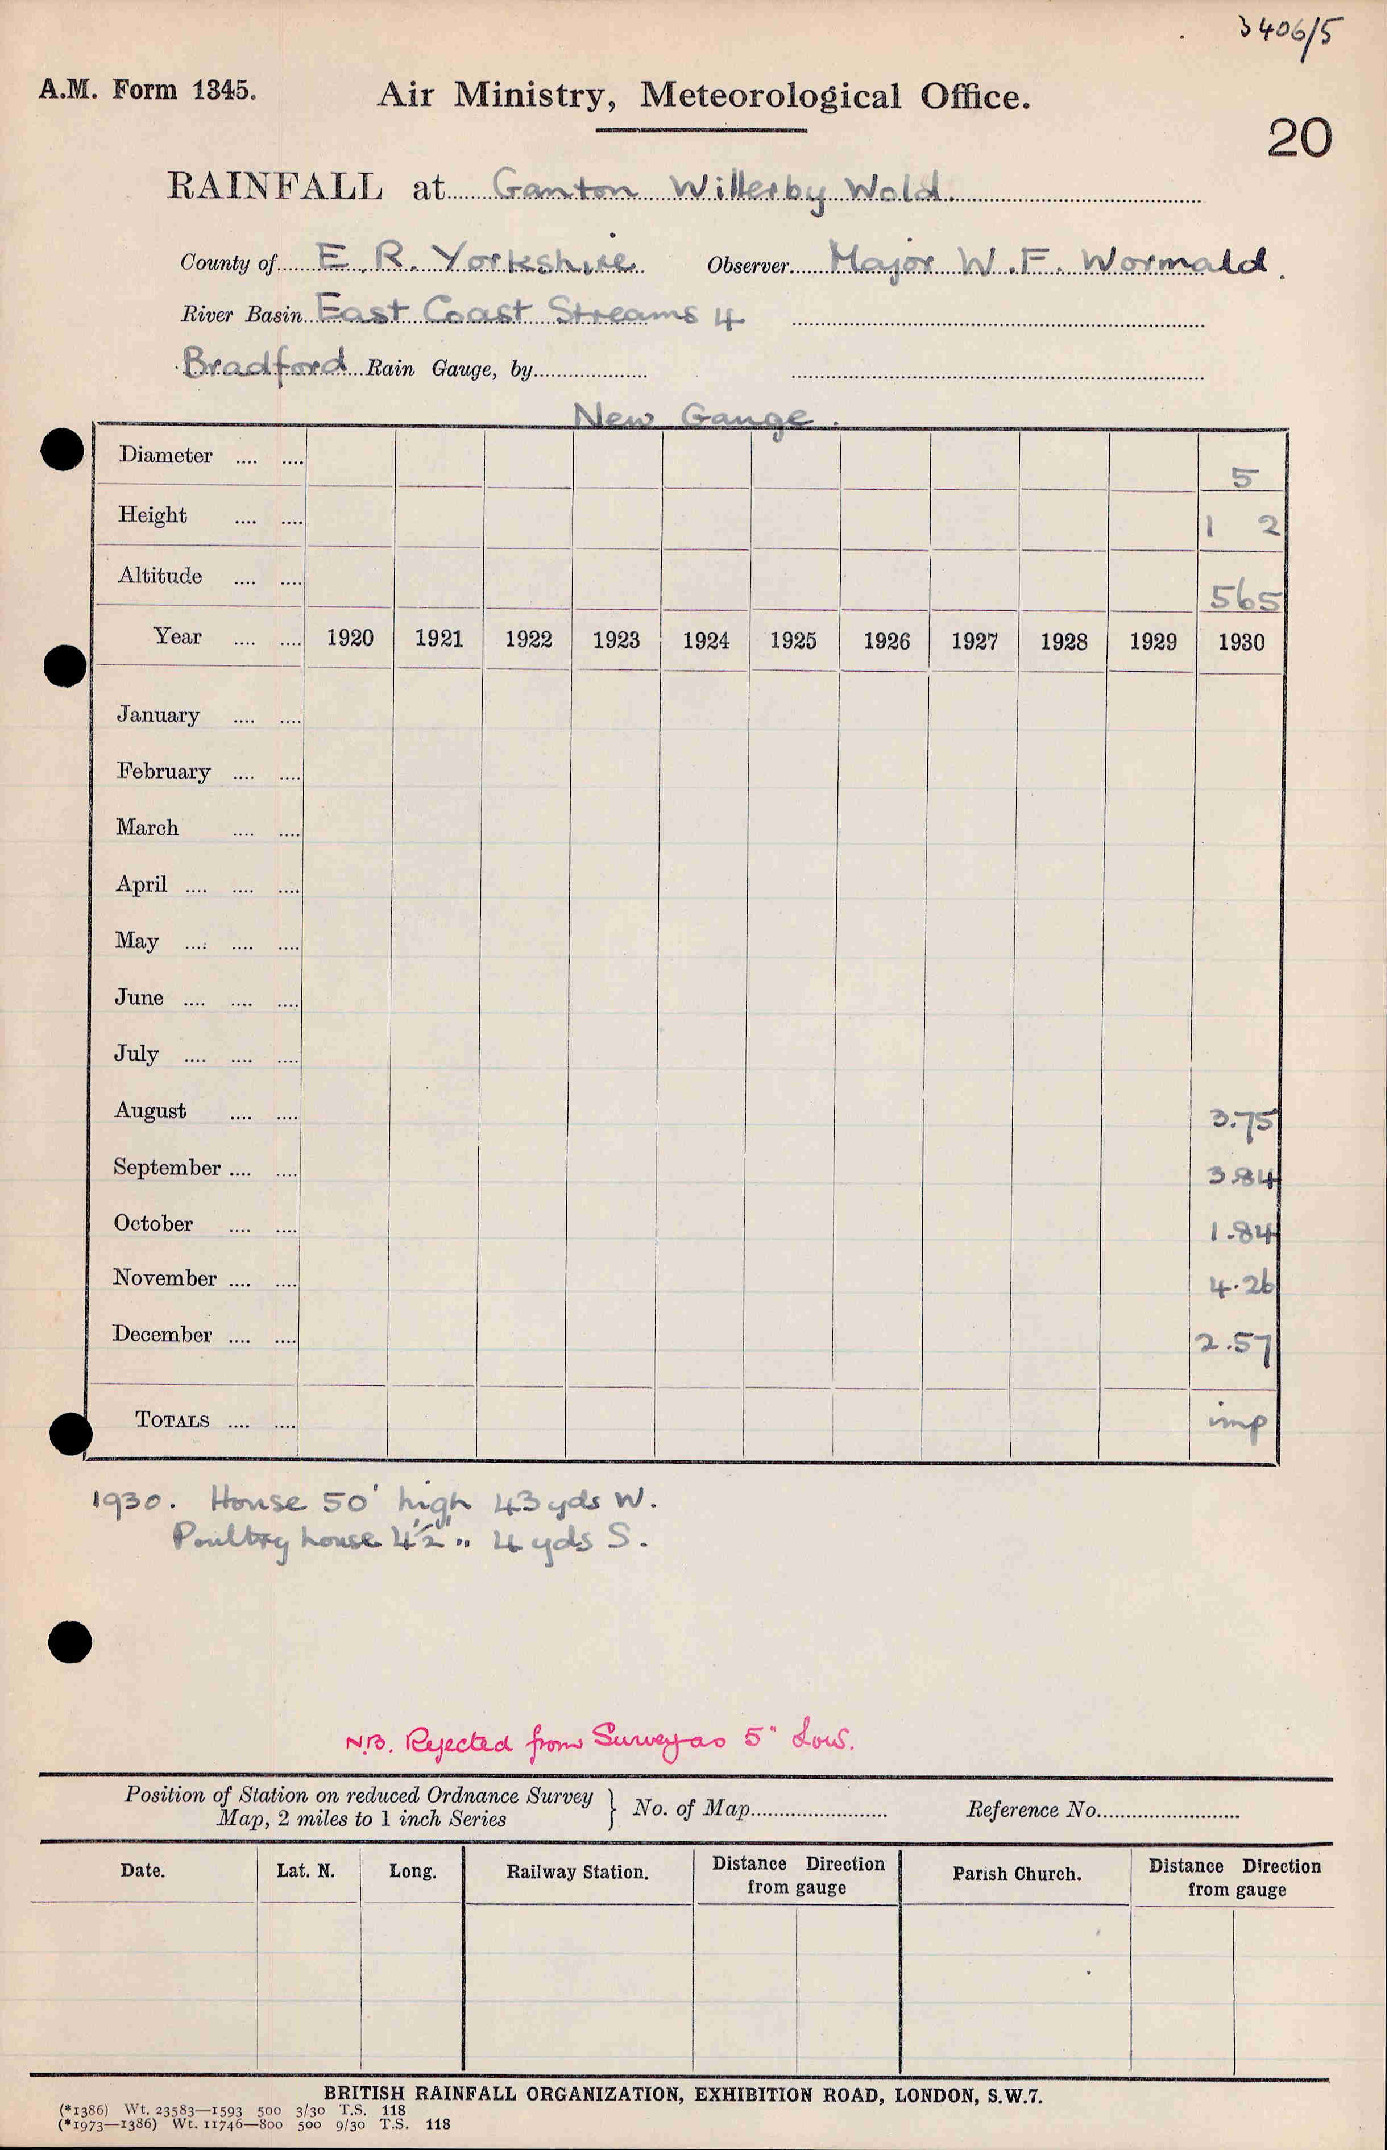 3406/5
A.M. Form 1345. Air Ministry, Meteorological Office.
20
RAINFALL at Ganton Willerby Wold.
County of E.R. Yorkshire Observer Major W.F. Wormald.
River Basin East Coast Streams 4
Bradford Rain Gauge, by
New Gauge.
Diameter .... .... 5
Height .... .... 1 2
Altitude .... .... 565
Year .... .... 1920 1921 1922 1923 1924 1925 1926 1927 1928 1929 1930
January .... ....
February .... ....
March .... ....
April .... .... ....
May .... .... ....
June .... .... ....
July .... .... ....
August .... .... 3.75
September .... .... 3.84
October .... .... 1.84
November .... .... 4.26
December .... .... 2.57
TOTALS .... .... imp
1930. House 50' high 43 yds W.
Poultry house 4½' " 4 yds S.
N.B. Rejected from Survey as 5" Low.
Position of Station on reduced Ordnance Survey
Map, 2 miles to 1 inch Series } No. of Map Reference No.
Date. Lat. N. Long. Railway Station. Distance Direction from gauge Parish Church. Distance Direction from gauge
BRITISH RAINFALL ORGANIZATION, EXHIBITION ROAD, LONDON, S.W.7.
(*1386) Wt. 23583—1593 500 3/30 T.S. 118
(*1973—1386) Wt. 11746—800 500 9/30 T.S. 118